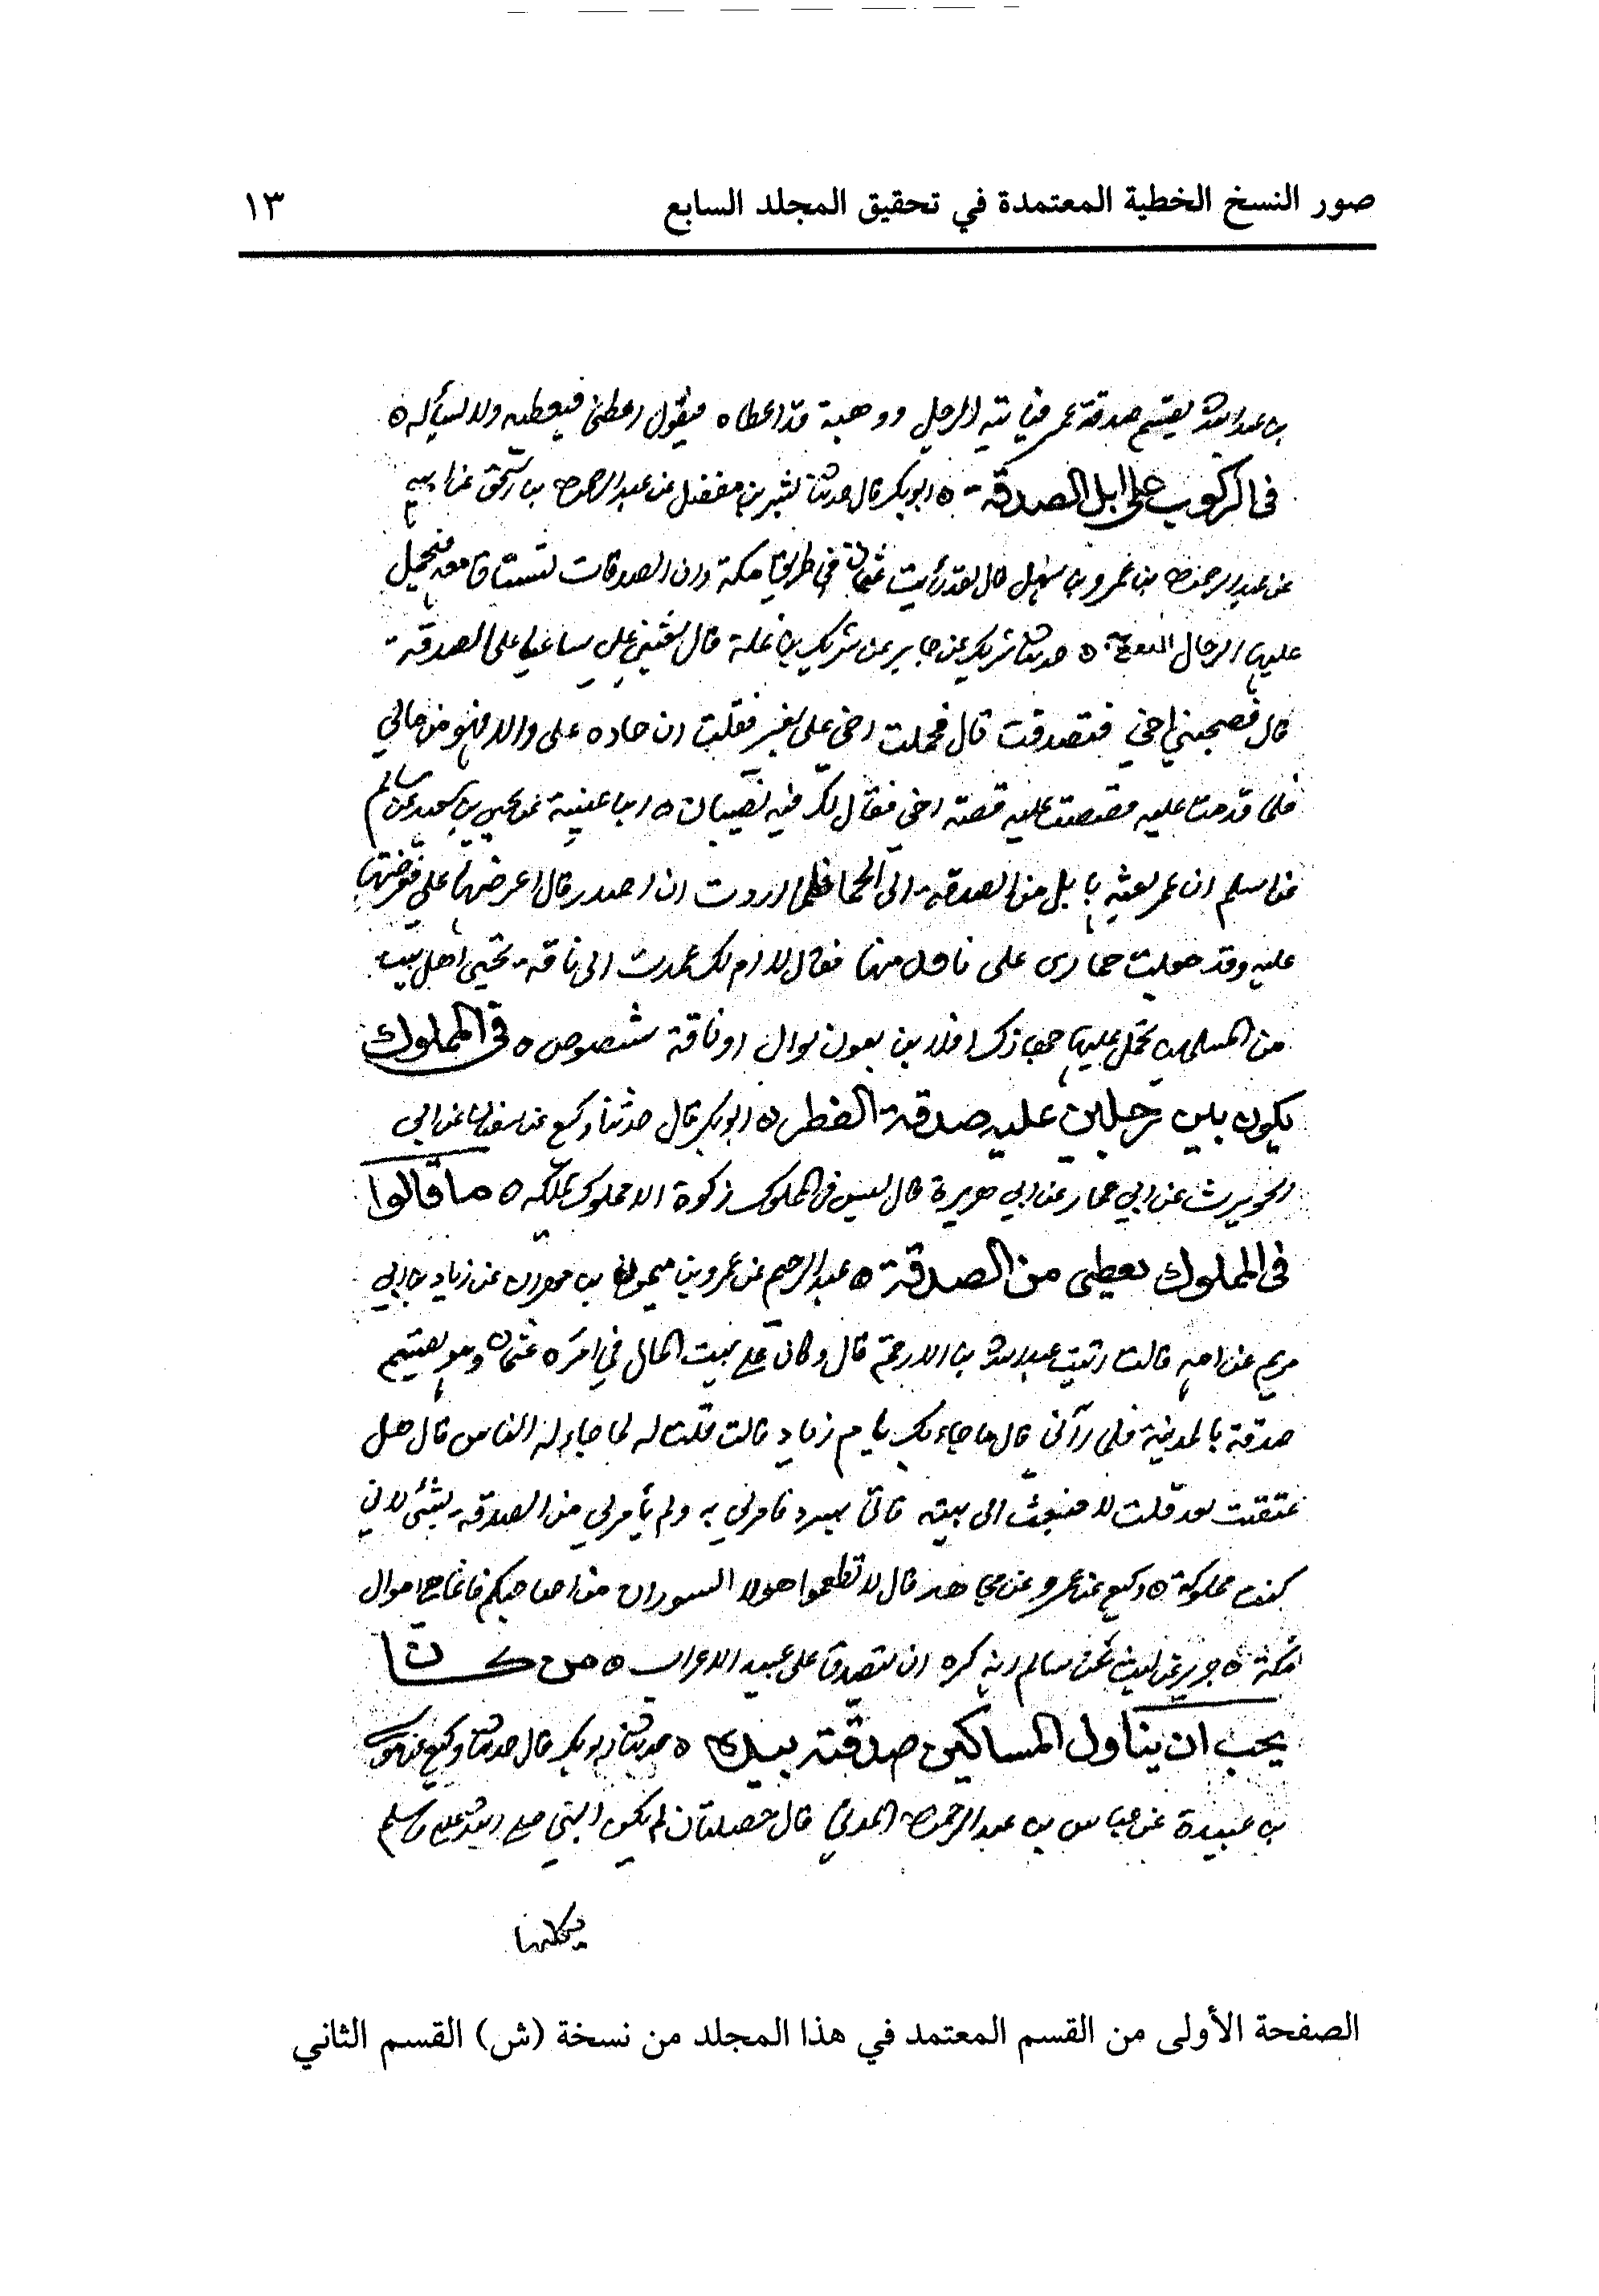 صور النسخ الخطية المعتمدة في تحقيق المجلد السابع
١٣
بن عبد الله يقسم صدقة عمر فيأتيه الرجل ذو هيبة قد اعطاه فيقول اعطني فيعطيه ولا يسأله ه
في الركوب على ابل الصدقة ه ابو بكر قال حدثنا بشر بن مفضل عن عبد الرحمن بن اسحق عن ابيه
عن عبد الرحمن بن عمرو بن سهل قال لقد رأيت عثمان في طريق مكة وان الصدقات لتساق معه فيحمل
عليها الرجال ه حدثنا شريك عن جابر عن شريك بن نملة قال بعثني علي ساعيا على الصدقة
قال فصحبني اخي فتصدقت قال فحملت اخي على بعير فقلت ان جازه علي والا فهو من مالي
فلما قدمت عليه قصصت عليه قصة اخي فقال لك فيه نصيبان ه ابن عيينة عن يحيى بن سعيد عن سالم
عن اسلم ان عمر بعثه بابل من الصدقة الى الحما فلما اردت ان اصدر قال اعرضها علي فعرضتها
عليه وقد جعلت جهازي على ناقة منها فقال لا ام لك عمدت الى ناقة تحيي اهل بيت
من المسلمين تحمل عليها جهازك افلا ابن لبون بوال او ناقة شصوص ه في المملوك
يكون بين رجلين عليه صدقة الفطر ه ابو بكر قال حدثنا وكيع عن سفيان عن ابي
الحويرث عن ابي عمار عن ابي هريرة قال ليس في المملوك زكوة الا مملوك تملكه ه ما قالوا
في المملوك يعطى من الصدقة ه عبد الرحيم عن عمرو بن ميمون بن مهران عن زياد بن ابي
مريم عن امه قالت اتيت عبد الله بن الارقم قال وكان على بيت المال في امرة عثمان وهو يقسم
صدقة بالمدينة فلما رآني قال ما جاء بك يا ام زياد قالت قلت له لما جاء له الناس قال هل
عتقت بعد قلت لا فبعث الى بيته فاتى ببرد فامر لي به ولم يأمر لي من الصدقة بشئ لاني
كنت مملوكة ه وكيع عن عمر وعن مجاهد قال لا تطعموا هولا السودان من اضاحيكم فانما هي اموال
مكة ه جرير عن ليث عن سالم انه كره ان يتصدق على عبيد الاعراب ه من كان
يحب ان يناول المساكين صدقته بيده ه حدثنا ابو بكر قال حدثنا وكيع عن موسى
بن عبيدة عن عباس بن عبد الرحمن المدني قال خصلتان لم يكن النبي صلى الله عليه وسلم
يكلهما
الصفحة الأولى من القسم المعتمد في هذا المجلد من نسخة (ش) القسم الثاني